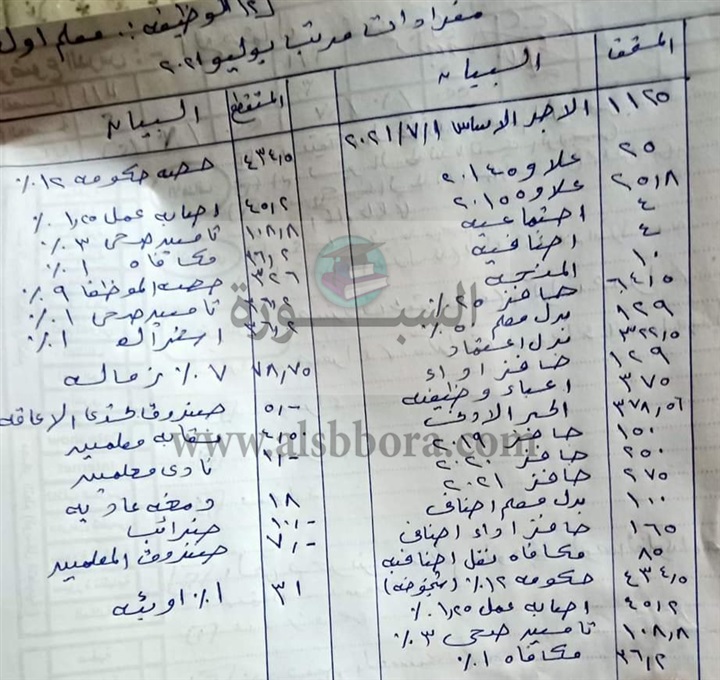 (٢) الوظيفة: معلم اول
مفردات مرتب يوليو ٢٠٢١
المستحق البيان
١١٢٥ الاجر الاساسى ٢٠٢١/٧/١
٢٥ علاوة ٢٠١٤
٢٥,٨ علاوة ٢٠١٥
٤ اجتماعية
٤ اضافية
١٠ المنحة
٦٤,٥ حافز ٢٥٪
٨٢٩ بدل معلم ٥٠٪
٣٢٢,٥ بدل اعتماد
١٢٩ حافز اداء
٣٧٥ اعباء وظيفيه
٣٧٨,٥٦ الحد الادنى
١٥٠ حافز ٢٠١٩
٢٥٠ حافز ٢٠٢٠
٢٧٥ حافز ٢٠٢١
١٠٠ بدل معلم اضافى
١٦٥ حافز اداء اضافى
٨٥ مكافاه نقل اضافيه
٤٣٤,٥ حكومه ١٢٪
٤٥,٢ اصابه عمل ١,٢٥٪
١٠٨,٨ تامين صحى ٣٪
٣٦,٢ مكافاه ١٪
المستقطع البيان
٤٣٤,٥ حصه حكومه ١٢٪
٤٥,٢ اصابه عمل ١,٢٥٪
١٠٨,٨ تامين صحى ٣٪
٣٦,٢ مكافاه ١٪
٣٢٦ حصه الموظف ٩٪
٣٦,٢ تامين صحى ١٪
٣٦,٢ اشتراك ١٪
٧٨,٧٥ ٧٪ زماله
٥,- صندوق تحدى الاعاقه
٤,٥ نقابه معلمين
١,- نادى معلمين
١٨ دمغه عاديه
١٠,- ضرائب
٧,- صندوق المعلمين
٣١ ١٪ اوبئه
السبورة
www.alsbbora.com